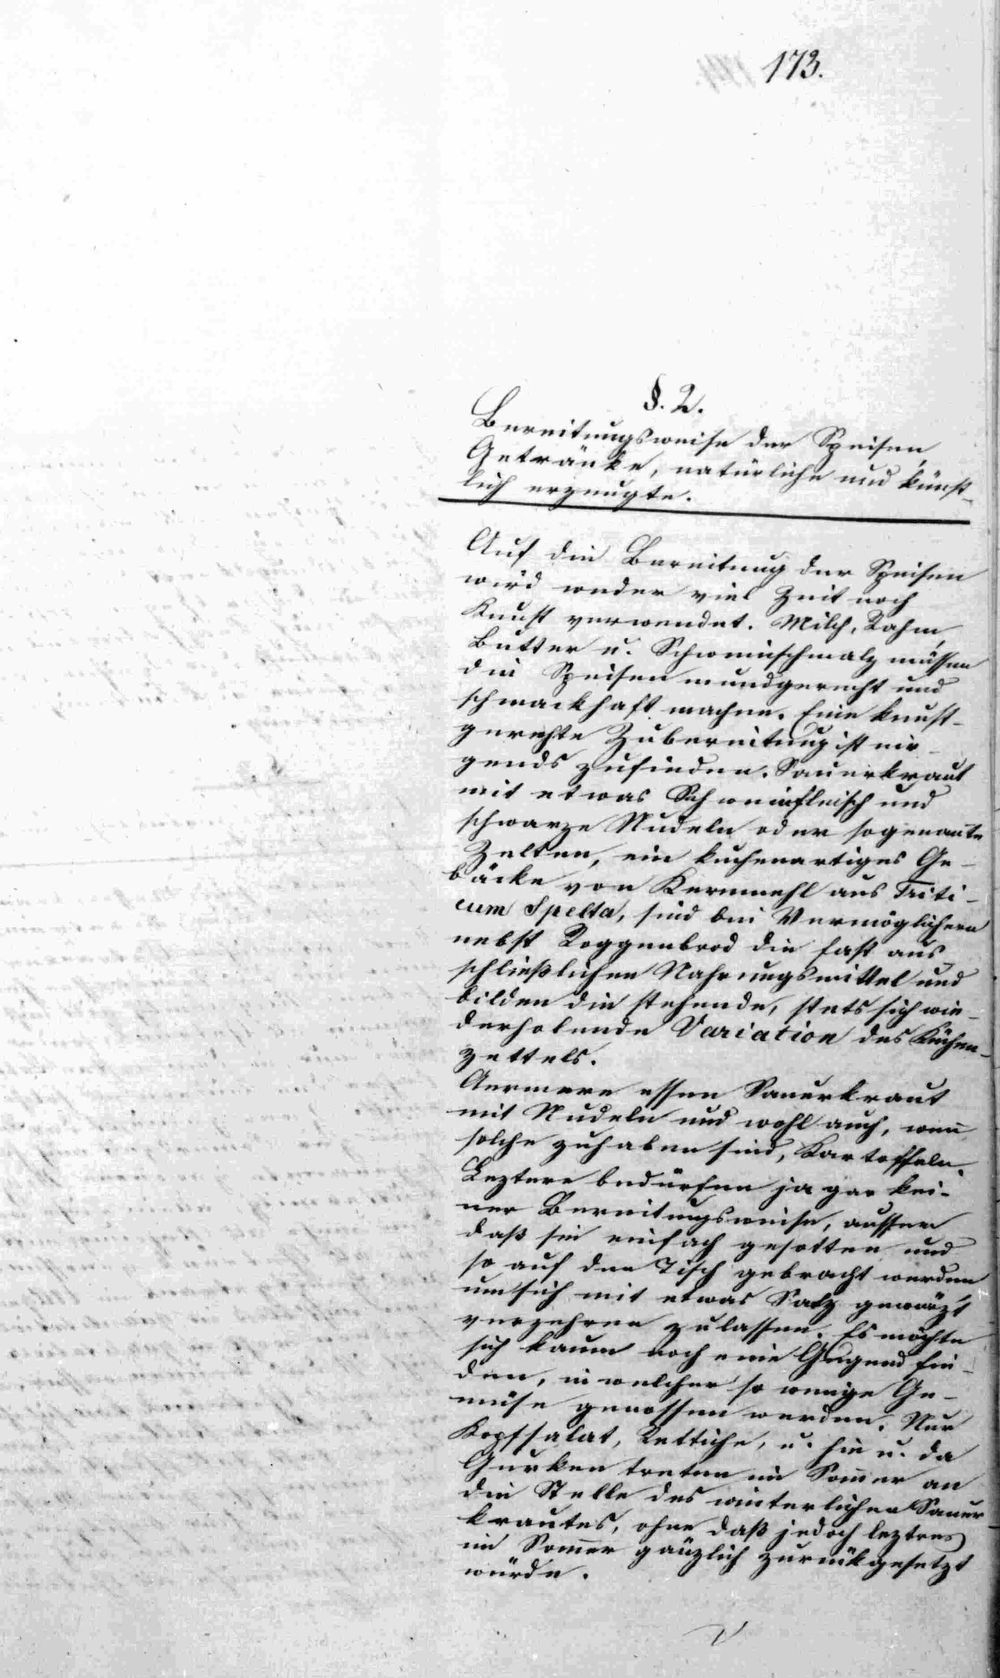 173.
§. 2.
Bereitungsweise der Speisen,
Getränke, natürliche und künst-
lich erzeugte.
Auf die Bereitung der Speisen
wird weder viel Zeit noch
Kunst verwendet. Milch, Rahm
Butter u. Schweinschmalz müssen
die Speisen mundgerecht und
schmackhaft machen. Eine kunst-
gerechte Zubereitung ist nir-
gends zufinden. Sauerkraut
mit etwas Schweinfleisch und
schwarze Nudeln oder sogenante
Zelten, ein kuchenartiges Ge-
bäcke von Kernmehl aus Triti-
cum Spelta, sind bei Vermöglichern
nebst Roggenbrod die fast aus-
schließlichen Nahrungsmittel und
bilden die stehende, stets sich wie-
derholende Variation des Küchen-
zettels.
Aermere essen Sauerkraut
mit Nudeln und wohl auch, wen̅
solche zuhaben sind, Kartoffeln.
Leztere bedürfen ja gar kei-
ner Bereitungsweise, ausser
daß sie einfach gesotten und
so auf den Tisch gebracht werden
um sich mit etwas Salz gewürzt
verzehren zulassen. Es möchte
sich kaum noch eine Gegend fin-
den, in welcher so wenige Ge-
müse genossen werden. Nur
Kopfsalat, Rettiche, u. hie u. da
Gurken treten im Som̅er an
die Stelle des winterlichen Sauer
krautes, ohne daß jedoch leztres
im Som̅er gänzlich zurükgesetzt
würde.